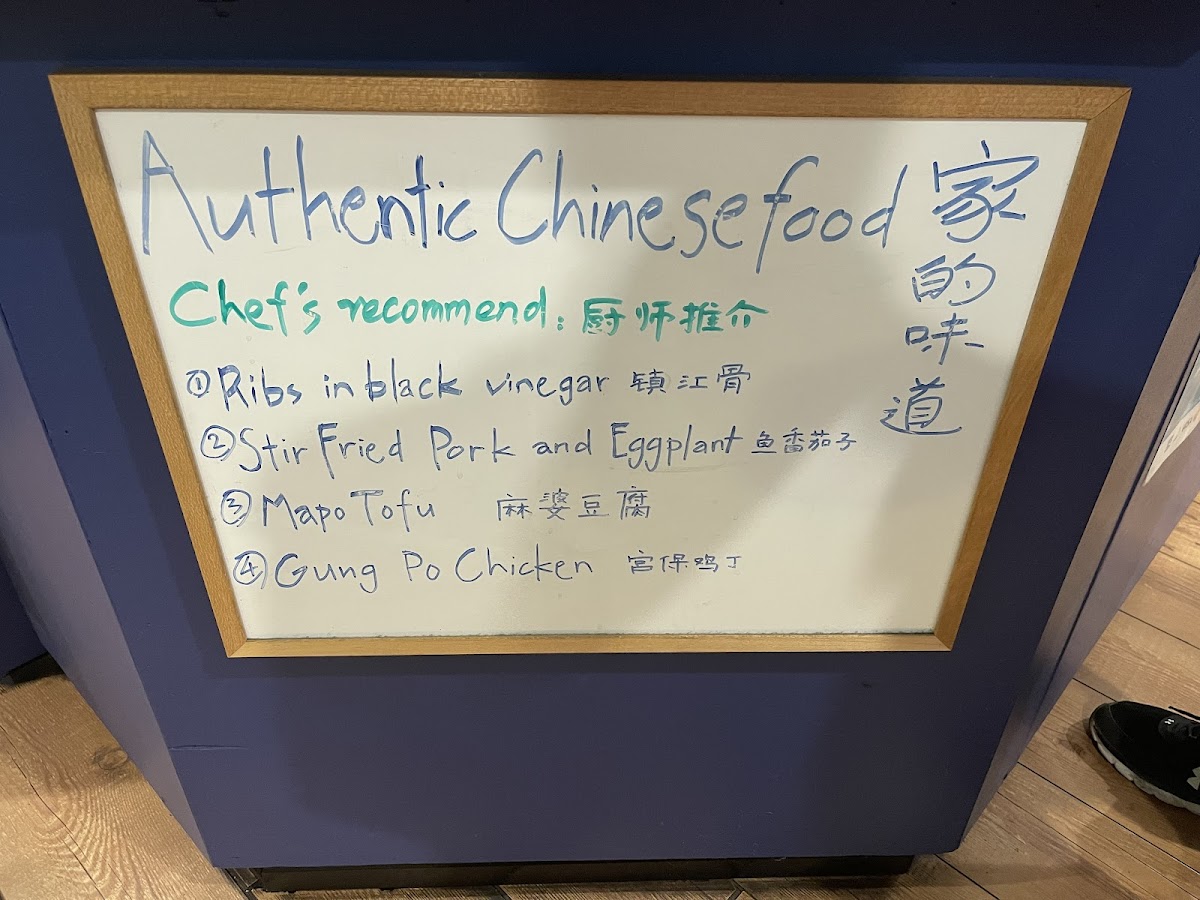 Authentic Chinese food
家的味道
Chef's recommend: 厨师推介
① Ribs in black vinegar 镇江骨
② Stir Fried Pork and Eggplant 鱼番茄子
③ Mapo Tofu 麻婆豆腐
④ Gung Po Chicken 宫保鸡丁